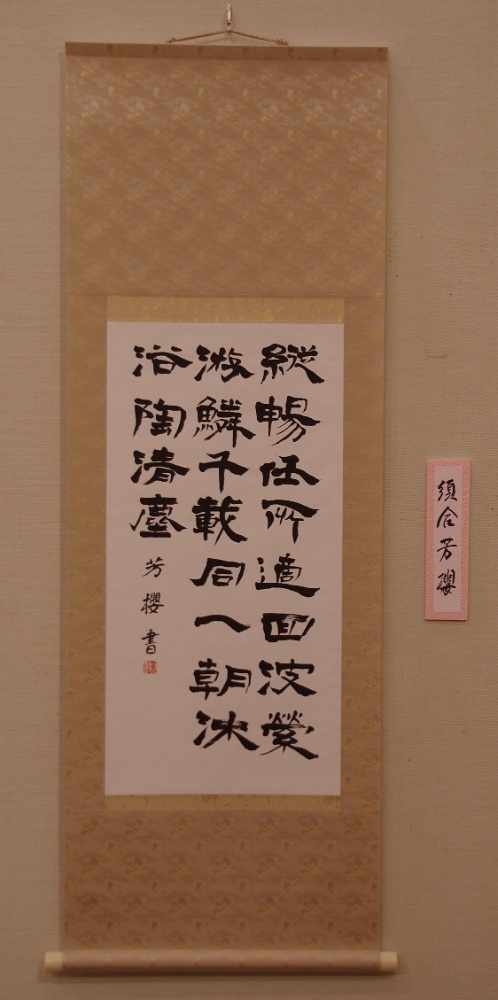 縱暢任所適回波縈
游鱗千載同一朝沐
浴陶清塵
芳櫻書
須合芳櫻